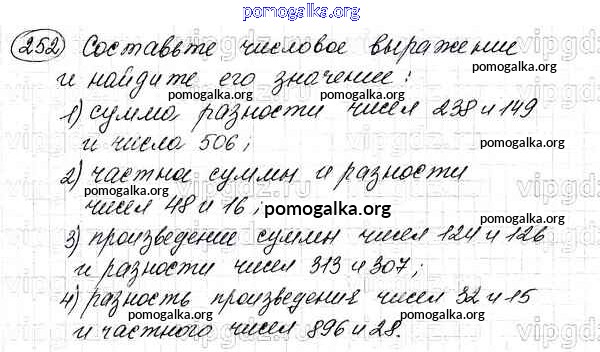 pomogalka.org
252 Составьте числовое выражение
и найдите его значение:
pomogalka.org
pomogalka.org
1) сумма разности чисел 238 и 149
и числа 506; pomogalka.org
pomogalka.org
2) частна суммы и разности
pomogalka.org
чисел 48 и 16; pomogalka.org
pomogalka.org
3) произведение суммы чисел 124 и 126
и разности чисел 313 и 307;
pomogalka.org
pomogalka.org
4) разность произведения чисел 32 и 15
и частного чисел 896 и 28.
pomogalka.org